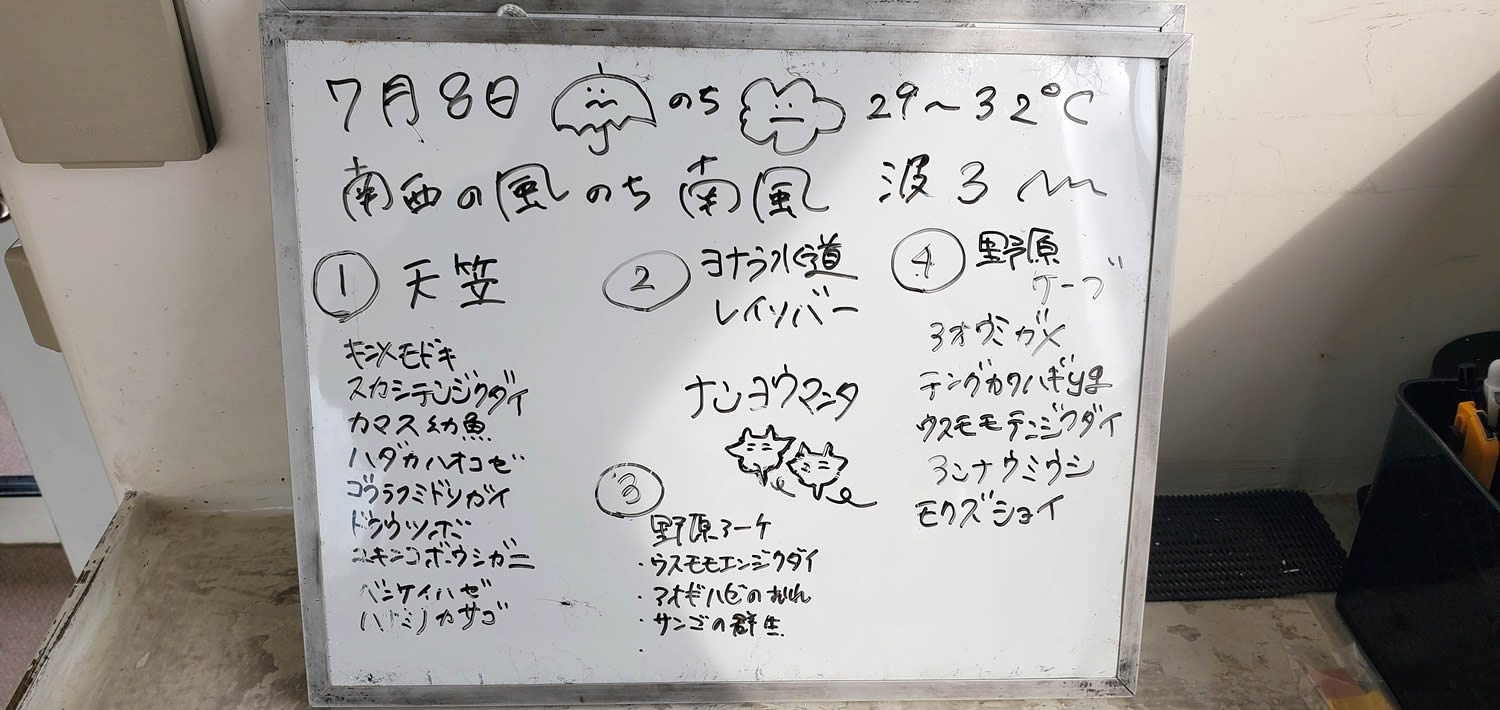 7月8日 のち 29～32℃
南西の風のち 南風 波3m
① 天笠
キンメモドキ
スカシテンジクダイ
カマス幼魚
ハダカハオコゼ
ゴクラクミドリガイ
ドクウツボ
ユキンコボウシガニ
ベンケイハゼ
ハナミノカサゴ
② ヨナラ水道
レインバー
ナンヨウマンタ
③
野原アーケ
・ウスモモエンジクダイ
・アオギハゼのむれ
・サンゴの群生
④ 野原
ケーブ
アオウミガメ
テングカワハギyg
ウスモモテンジクダイ
コンナウミウシ
モクズショイ